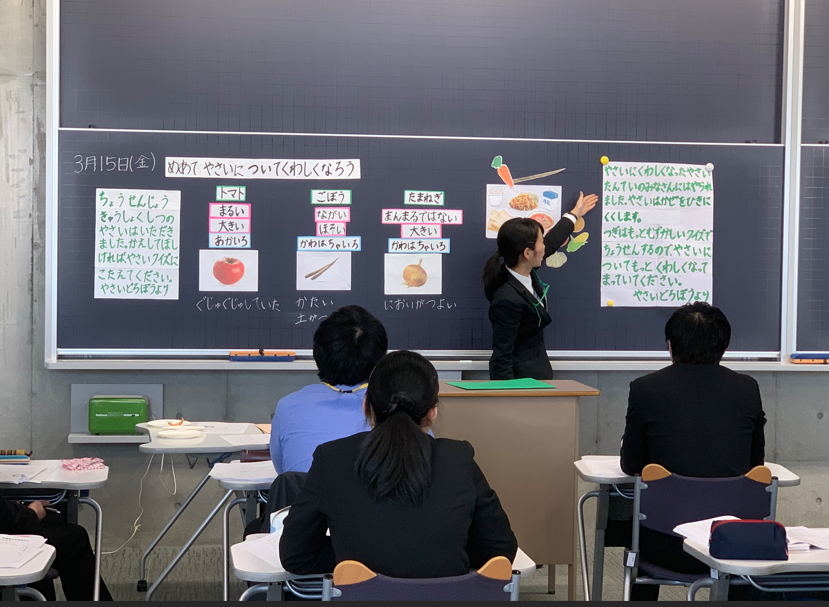 3月15日(金)
めあて やさいに ついてくわしくなろう
ちょうせんじょう
きゅうしょくしつの
やさいはいただき
ました。かえしてほし
ければやさいクイズに
こたえてください。
やさいどろぼうより
トマト
まるい
大きい
あかいろ
ぐじゅぐじゅしていた
ごぼう
ながい
ほそい
かわはちゃいろ
かたい
土が
たまねぎ
まんまるではない
大きい
かわはちゃいろ
においがつよい
やさいにくわしくなったやさい
たんていのみなさんにはやられ
ました。やさいはかごをひきに
くくします。
つぎはもっとむずかしいクイズで
ちょうせんするので、やさいに
ついてもっとくわしくなって
まっていてください。
やさいどろぼうより